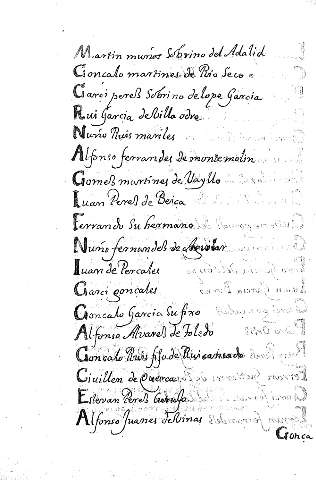 Martin muños Sobrino del Adalid
Gonçalo martines de Rio Seco
Garci pereß Sobrino de lope Garcia
Rui Garcia de Villa odre
Nuño Ruis mariles
Alfonso ferrandes de monte molin
Gomeß martines de Vayllo
Iuan Pereß de Beiça
Ferrando Su hermano
Nuño fernandeß de Aguilar
Iuan de Percales
Garci gonçales
Gonçalo Garcia Su fijo
Alfonso Alvareß de Toledo
Gonçalo Ruis fijo de Rui
Guillen de
Estevan Pereß
Alfonso Juanes de Vinas
Gonça